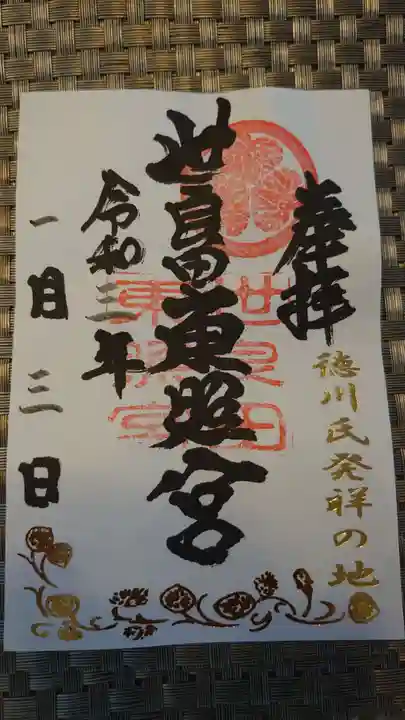 奉拝
徳川氏発祥の地
世良田東照宮
世良田
東照宮
令和三年
一月三日